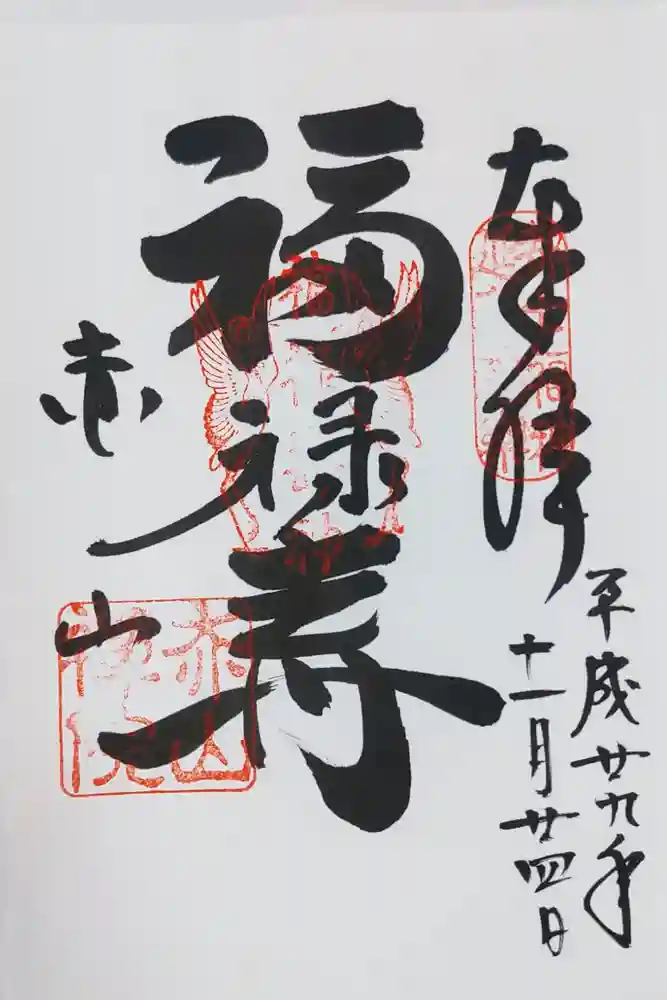 奉拝
平成廿九年
十一月廿四日
福禄寿
赤山
赤山
禅院